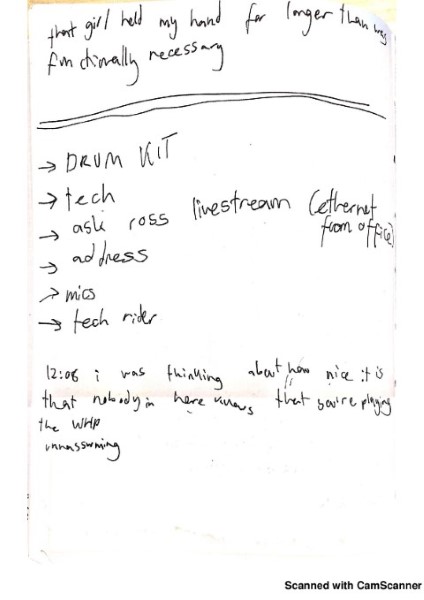 that girl held my hand for longer than was
functionally necessary
→ DRUM KIT
→ tech
→ ask ross livestream (ethernet
from office)
→ address
→ mics
→ tech rider
12:08 i was thinking about how nice it is
that nobody in here knows that you're playing
the WHP
unnassuming
Scanned with CamScanner